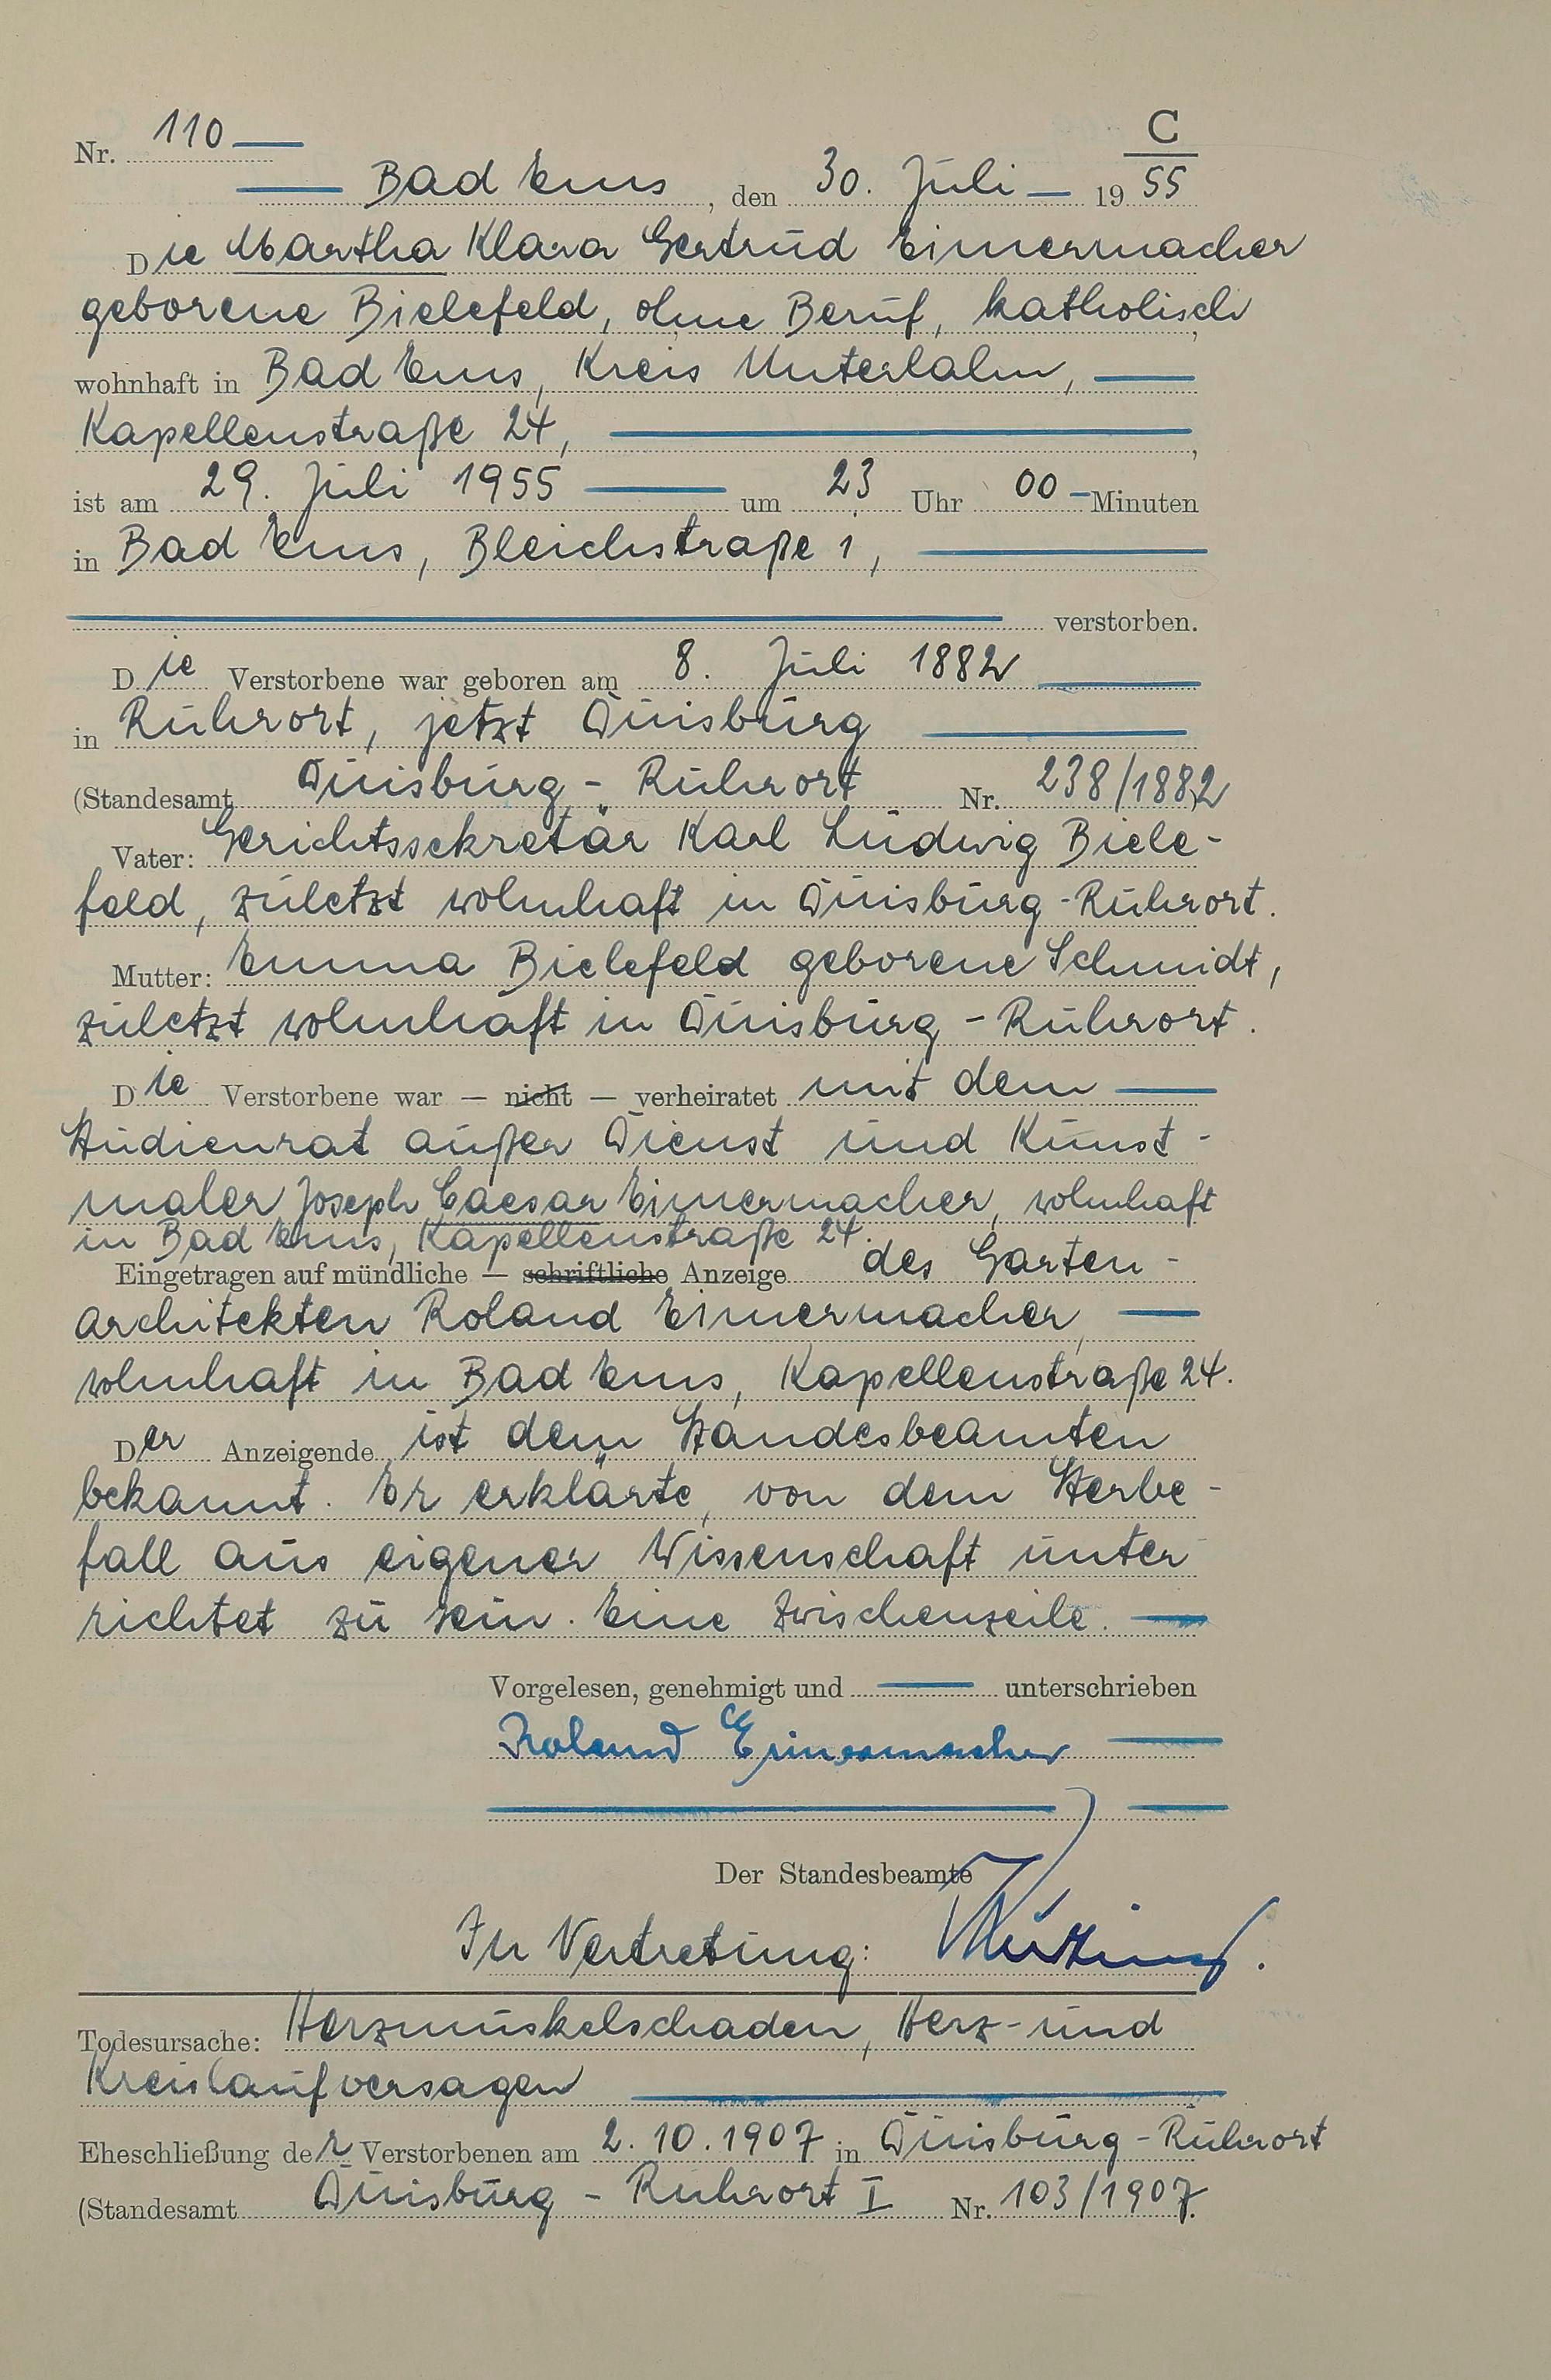 C
Nr. 110
Bad Ems, den 30. Juli 19 55
Die Martha Klara Gertrud Eimermacher
geborene Bielefeld, ohne Beruf, katholisch
wohnhaft in Bad Ems, Kreis Unterlahn,
Kapellenstraße 24,
ist am 29. Juli 1955 um 23 Uhr 00 Minuten
in Bad Ems, Bleichstraße 1,
verstorben.
Die Verstorbene war geboren am 8. Juli 1882
in Ruhrort, jetzt Duisburg
(Standesamt Duisburg-Ruhrort Nr. 238/1882)
Vater: Gerichtssekretär Karl Ludwig Biele-
feld, zuletzt wohnhaft in Duisburg-Ruhrort.
Mutter: Emma Bielefeld geborene Schmidt,
zuletzt wohnhaft in Duisburg-Ruhrort.
Die Verstorbene war — nicht — verheiratet mit dem
Studienrat außer Dienst und Kunst-
maler Joseph Caesar Eimermacher, wohnhaft
in Bad Ems, Kapellenstraße 24.
Eingetragen auf mündliche — schriftliche Anzeige des Garten-
architekten Roland Eimermacher,
wohnhaft in Bad Ems, Kapellenstraße 24.
Der Anzeigende ist dem Standesbeamten
bekannt. Er erklärte, von dem Sterbe-
fall aus eigener Wissenschaft unter-
richtet zu sein. Eine Zwischenzeile.
Vorgelesen, genehmigt und unterschrieben
Roland Eimermacher
Der Standesbeamte
In Vertretung:
Todesursache: Herzmuskelschaden, Herz- und
Kreislaufversagen
Eheschließung der Verstorbenen am 2.10.1907 in Duisburg-Ruhrort
(Standesamt Duisburg-Ruhrort I Nr. 103/1907.